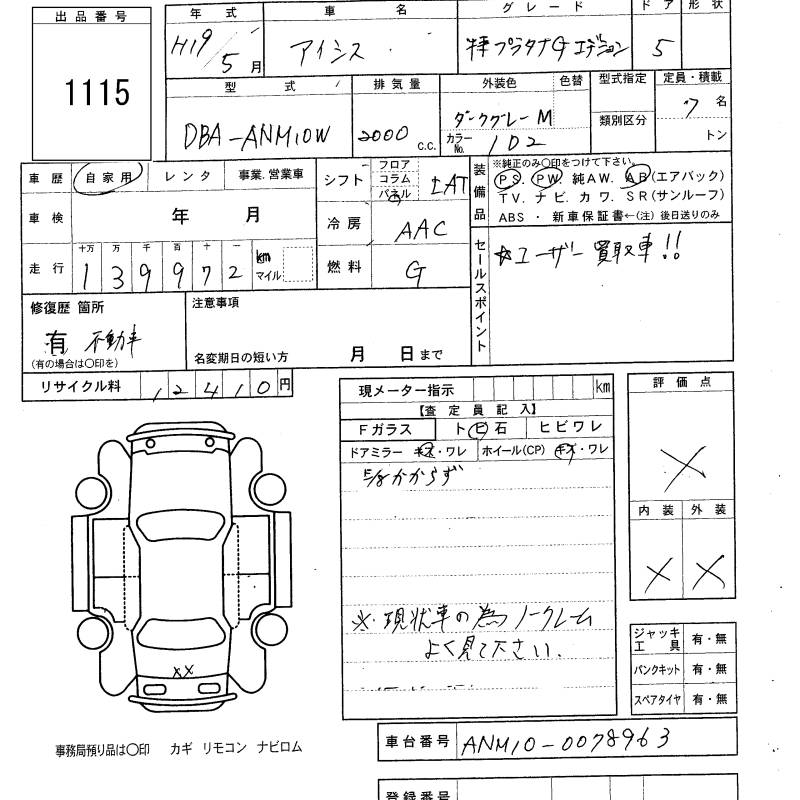 出品番号
1115
年式
H19/5月
車名
アイシス
グレード
特車プラタナGエディション
ドア
5
形状
型式
DBA-ANM10W
排気量
2000 c.c.
外装色
色替
ダークグレーM
カラーNo. 102
型式指定
類別区分
定員・積載
7名
トン
車歴 自家用 レンタ 事業.営業車
車検 年 月
走行 十万 万 千 百 十 一
139972 km マイル
シフト フロア コラム パネル IAT
冷房 AAC
燃料 G
装備品
※純正のみ〇印をつけて下さい。
PS. PW. 純AW. AB(エアバック)
TV. ナビ. カワ. SR(サンルーフ)
ABS ・ 新車保証書←(注)後日送りのみ
セールスポイント
☆ユーザー買取車!!
修復歴 箇所
有 不動車
(有の場合は〇印を)
注意事項
名変期日の短い方 月 日まで
リサイクル料 12410円
現メーター指示 km
【査定員記入】
Fガラス ト ビ 石 ヒビワレ
ドアミラー キズ・ワレ ホイール(CP) キズ・ワレ
E/gかからず
※.現状車の為ノークレーム
よく見て下さい.
評価点
×
内装 外装
× ×
××
ジャッキ工具 有・無
パンクキット 有・無
スペアタイヤ 有・無
事務局預り品は〇印 カギ リモコン ナビロム
車台番号 ANM10-0078963
登録番号